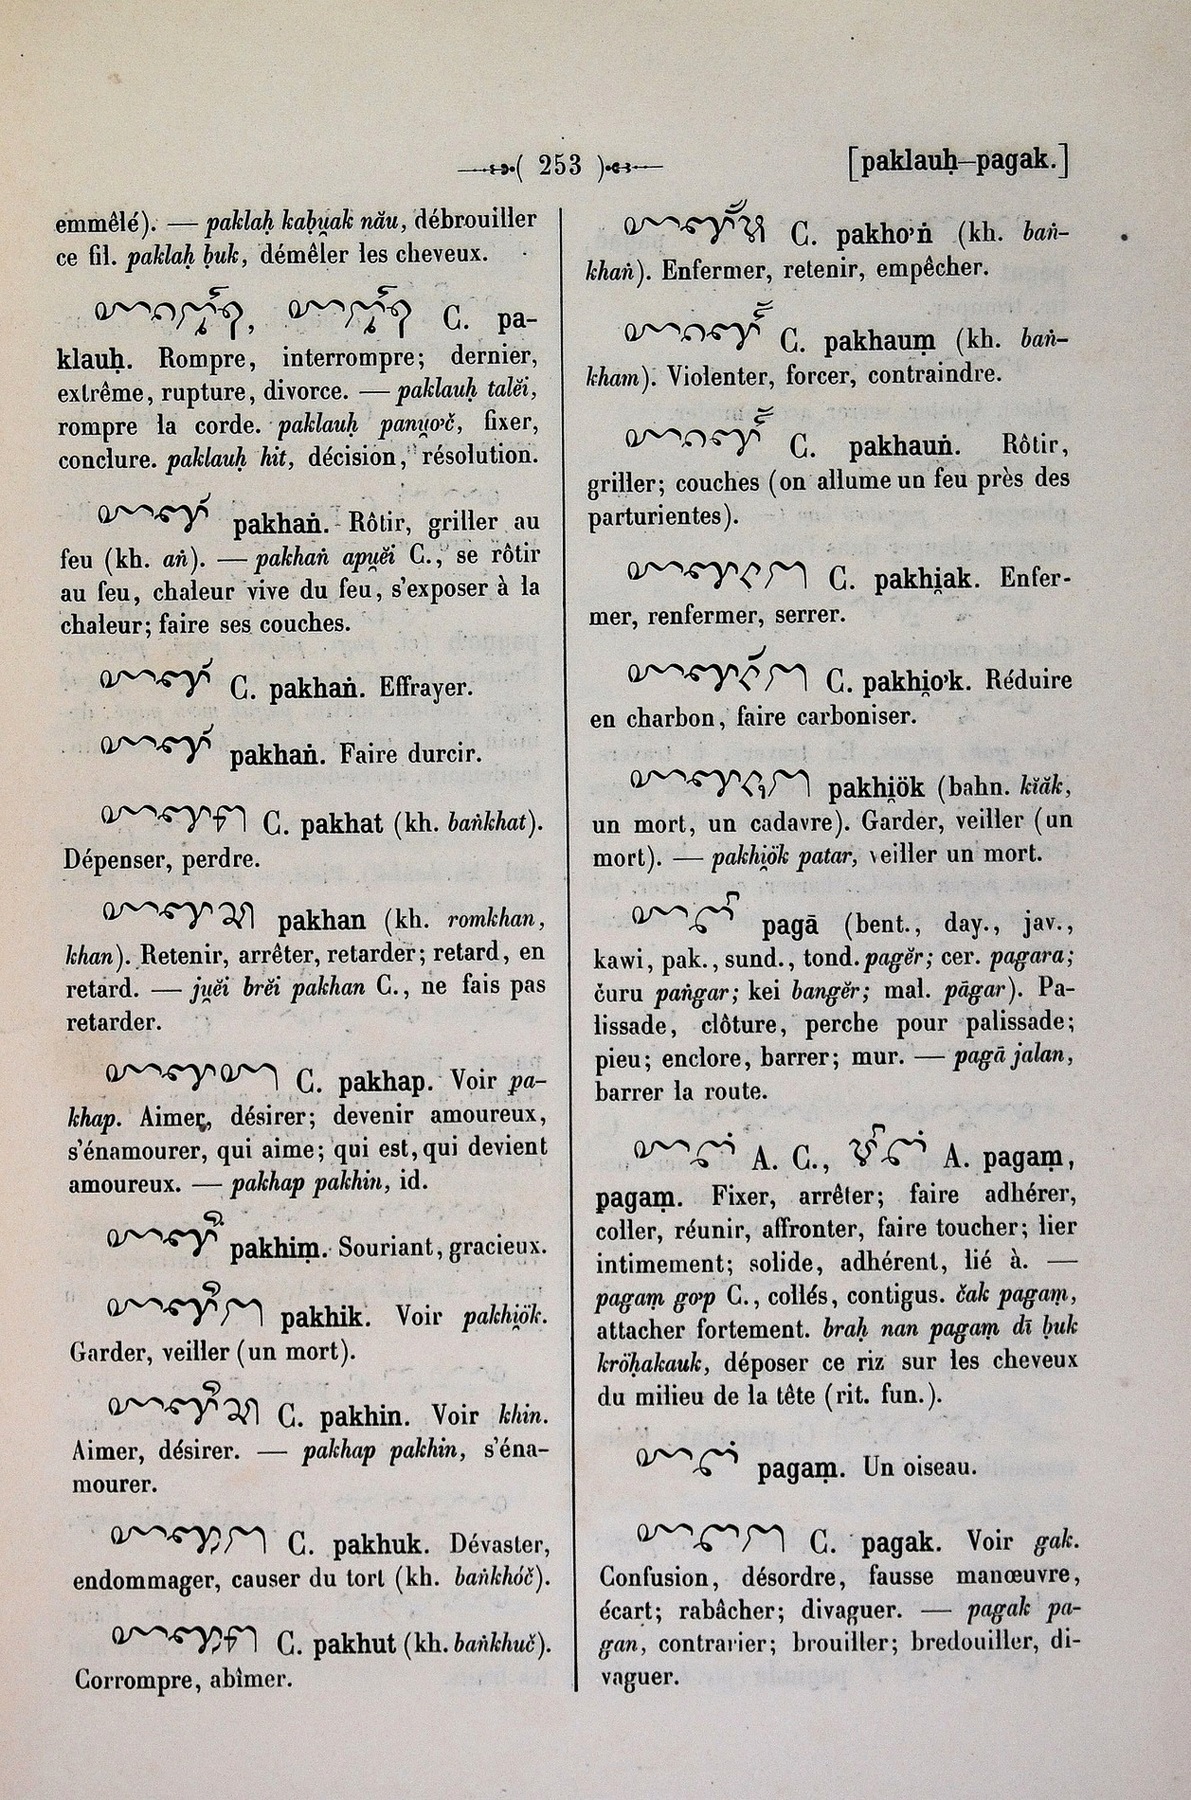 ( 253 )
[paklauḥ—pagak.]
emmêlé). — paklaḥ kaḅṷak nău, débrouiller
ce fil. paklaḥ ḅuk, démêler les cheveux.
C. pa-
klauḥ. Rompre, interrompre; dernier,
extrême, rupture, divorce. — paklauḥ talĕi,
rompre la corde. paklauḥ panṷo'č, fixer,
conclure. paklauḥ hit, décision, résolution.
pakhaṅ. Rôtir, griller au
feu (kh. aṅ). — pakhaṅ apṷĕi C., se rôtir
au feu, chaleur vive du feu, s'exposer à la
chaleur; faire ses couches.
C. pakhaṅ. Effrayer.
pakhaṅ. Faire durcir.
C. pakhat (kh. baṅkhat).
Dépenser, perdre.
pakhan (kh. romkhan,
khan). Retenir, arrêter, retarder; retard, en
retard. — jṷĕi brĕi pakhan C., ne fais pas
retarder.
C. pakhap. Voir pa-
khap. Aimer, désirer; devenir amoureux,
s'énamourer, qui aime; qui est, qui devient
amoureux. — pakhap pakhin, id.
pakhiṃ. Souriant, gracieux.
pakhik. Voir pakhi̭ök.
Garder, veiller (un mort).
C. pakhin. Voir khin.
Aimer, désirer. — pakhap pakhin, s'éna-
mourer.
C. pakhuk. Dévaster,
endommager, causer du tort (kh. baṅkhóč).
C. pakhut (kh. baṅkhuč).
Corrompre, abîmer.
C. pakho'ṅ (kh. baṅ-
khaṅ). Enfermer, retenir, empêcher.
C. pakhauṃ (kh. baṅ-
kham). Violenter, forcer, contraindre.
C. pakhauṅ. Rôtir,
griller; couches (on allume un feu près des
parturientes).
C. pakhi̭ak. Enfer-
mer, renfermer, serrer.
C. pakhi̭o'k. Réduire
en charbon, faire carboniser.
pakhi̭ök (bahn. kiăk,
un mort, un cadavre). Garder, veiller (un
mort). — pakhi̭ök patar, veiller un mort.
pagā (bent., day., jav.,
kawi, pak., sund., tond. pagĕr; cer. pagara;
čuru paṅgar; kei bangĕr; mal. pāgar). Pa-
lissade, clôture, perche pour palissade;
pieu; enclore, barrer; mur. — pagā jalan,
barrer la route.
A. C., A. pagaṃ,
pagaṃ. Fixer, arrêter; faire adhérer,
coller, réunir, affronter, faire toucher; lier
intimement; solide, adhérent, lié à. —
pagaṃ go'p C., collés, contigus. čak pagaṃ,
attacher fortement. braḥ nan pagaṃ dī ḅuk
kröḥakauk, déposer ce riz sur les cheveux
du milieu de la tête (rit. fun.).
pagaṃ. Un oiseau.
C. pagak. Voir gak.
Confusion, désordre, fausse manœuvre,
écart; rabâcher; divaguer. — pagak pa-
gan, contrarier; brouiller; bredouiller, di-
vaguer.